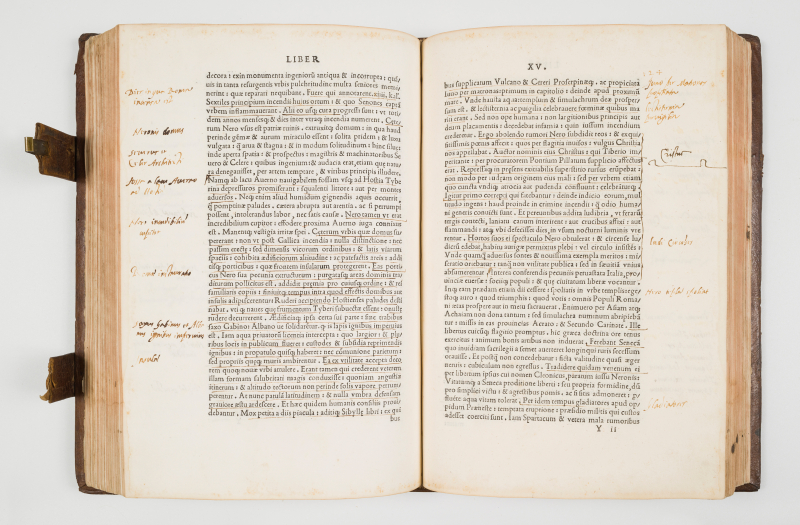 LIBER
decora: exin monumenta ingeniorū antiqua & incorrupta: quis
uis in tanta resurgentis urbis pulchritudine multa seniores memi
nerint: quæ reparari nequibant. Fuere qui annotarent. xiiii. kal.
Sextiles principium incendii huius ortum: & quo Senones captā
urbem inflammauerant. Alii eo usq; cura progressi sunt: ut toti
dem annos menses q; & dies inter utraq; incendia numerent. Cæte
rum Nero usus est patriæ ruinis. extruxitq; domum: in qua haud
perinde gēmæ & aurum miraculo essent: solita pridem: & luxu
uulgata: q̄ arua & stagna: & in modum solitudinum: hinc siluæ:
inde aperta spatia: & prospectus: magistris & machinatoribus Se
uero & Celere: quibus ingenium & audacia erat, etiam quæ natu
ra denegauisset, per artem temptare, & uiribus principis illudere.
Namq; ab lacu Auerno nauigabilem fossam usq; ad Hostia Tybe
rina depressuros promiserant: squalenti litore: aut per montes
aduersos. Neq; enim aliud humidum gignendis aquis occurrit,
q̄ pomptinæ paludes. cætera abrupta aut arentia. ac si perrumpi
possent, intolerandus labor, nec satis causæ. Nero tamen ut erat
incredibilium cupitor: effodere proxima Auerno iuga connisus
est. Manentq; uestigia irritæ spei. Cæterum urbis quæ domui sus
pererant: non ut post Gallica incendia: nulla distinctione: nec
passim erecta: sed dimensis uicorum ordinibus: & latis uiarum
spatiis: cohibita ædificiorum altitudine: ac patefactis areis: addi
tisq; porticibus: quæ frontem insularum protegerent. Eas porti
cus Nero sua pecunia extructurum: purgatasq; areas dominis tra
diturum pollicitus est. addidit præmia pro cuiusq; ordine: & rei
familiaris copiis: finiuitq; tempus intra quod effectis domibus aut
insulis adipiscerentur: Ruderi accipiendo Hostienses paludes desti
nabat. utiq; naues quæ frumentum Tyberi subuectassent: onustæ
rudere decurrerent. Aedificiaq; ipsa certa sui parte: sine trabibus
saxo Gabino Albano ue solidarētur. q; is lapis ignibus imperuius
est. Iam aqua priuatorū licentia intercepta: quo largior: & plu
ribus locis in publicum flueret: custodes & subsidia reprimendis
ignibus: in propatulo quisq; haberet: nec cōmunione parietum:
sed propriis quæq; muris ambirentur. Ea ex utilitate accepta deco
rem quoq; nouæ urbi attulere. Erant tamen qui crederent ueterem
illam formam salubritati magis conduxisse: quoniam angustiæ
itinerum: & altitudo tectorum non perinde solis uapore perrum
perentur. At nunc patulā latitudinem: & nulla umbra defensam
grauiore æstu ardescere. Et hæc quidem humanis consiliis proui
debantur. Mox petita a diis piacula: aditiq; Sibyllæ libri: ex qui
bus
Neronis domus
XV.
bus supplicatum Vulcano & Cereri Proserpinæq;. ac propiciata
Iuno per matronas: primum in capitolio: deinde apud proximū
mare. Vnde hausta aqua: templum & simulachrum deæ persper
sum est. & lectisternia ac peruigilia celebrauere foeminæ quibus ma
riti erant. Sed non ope humana: non largitionibus principis aut
deum placamentis: decedebat infamia: quin iussum incendium
crederetur. Ergo abolendo rumori Nero subdidit reos: & exquisi
tissimis poenis affecit: quos per flagitia inuisos: uulgus Christia
nos appellabat. Auctor nominis eius Christus: qui Tiberio im
peritante: per procuratorem Pontium Pilatum supplicio affectus
erat. Repressaq; in præsens exitiabilis superstitio rursus erūpebat:
non modo per iudæam originem eius mali: sed per urbem etiam
quo cuncta undiq; atrocia aut pudenda confluunt: celebraturq;.
Igitur primo correpti qui fatebantur: deinde indicio eorum, mul
titudo ingens: haud proinde in crimine incendii: q̄ odio huma
ni generis conuicti sunt. Et pereuntibus addita ludibria, ut ferarū
tergis contecti, laniatu canum interirent: aut crucibus affixi: aut
flammandi: atq; ubi defecisset dies, in usum nocturni luminis ure
rentur. Hortos suos ei spectaculo Nero obtulerat: & circense lu
dicrum edebat, habitu aurigæ permixtus plebi: uel curriculo insistēs:
Vnde quamq; aduersus sontes & nouissima exempla meritos: mi
seratio oriebatur: tanq̄ non utilitate publica: sed in sæuitiā unius
absumerentur. Interea conferendis pecuniis peruastata Italia, pro
uinciæ euersæ: sociiq; populi: & quæ ciuitatum liberæ uocantur.
Inq; eam prædam etiam dii cessere: spoliatis in urbe templis: eges
stoq; auro: quod triumphis: quod uotis: omnis Populi Roma
ni ætas prospere aut in metu sacrauerat. Enimuero per Asiam atq;
Achaiam non dona tantum: sed simulachra numinum abripiebā
tur: missis in eas prouincias Acrato: & Secundo Carinate. Ille
libertus cuicūq; flagitio promptus. hic græca doctrina ore tenus
exercitus: animum bonis artibus non induerat. Ferebatur Seneca
quo inuidiam sacrilegii a semet auerteret longinqui ruris secessum
orauisse. Et postq̄ non concedebatur: ficta ualitudine quasi æger
neruis: cubiculum non egressus. Tradidere quidam uenenum ei
per libertum ipsius cui nomen Cleonicus, paratum iussu Neronis
Vitatumq; a Seneca proditione liberti: seu propria formidine, dū
pro simplici uictu: & agrestibus pomis. ac si sitis admoneret: p̄
fluente aqua uitam tolerat. Per idem tempus gladiatores apud op
pidum Præneste: temptata eruptione: præsidio militis qui custos
adesset coerciti sunt. Iam Spartacum & uetera mala rumoribus
Y ii
Christus